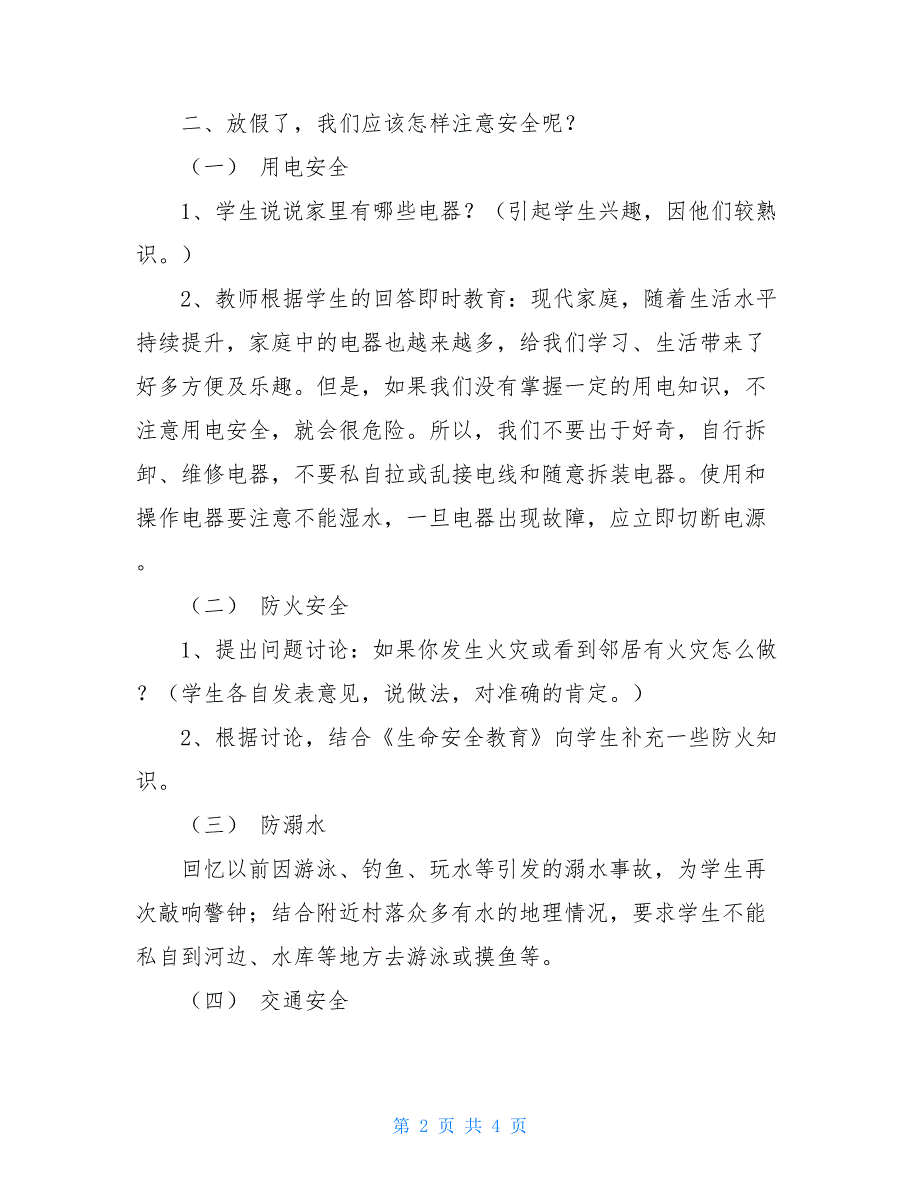 二、放假了，我们应该怎样注意安全呢？
（一） 用电安全
1、学生说说家里有哪些电器？（引起学生兴趣，因他们较熟
识。）
2、教师根据学生的回答即时教育：现代家庭，随着生活水平
持续提升，家庭中的电器也越来越多，给我们学习、生活带来了
好多方便及乐趣。但是，如果我们没有掌握一定的用电知识，不
注意用电安全，就会很危险。所以，我们不要出于好奇，自行拆
卸、维修电器，不要私自拉或乱接电线和随意拆装电器。使用和
操作电器要注意不能湿水，一旦电器出现故障，应立即切断电源
。
（二） 防火安全
1、提出问题讨论：如果你发生火灾或看到邻居有火灾怎么做
？（学生各自发表意见，说做法，对准确的肯定。）
2、根据讨论，结合《生命安全教育》向学生补充一些防火知
识。
（三） 防溺水
回忆以前因游泳、钓鱼、玩水等引发的溺水事故，为学生再
次敲响警钟；结合附近村落众多有水的地理情况，要求学生不能
私自到河边、水库等地方去游泳或摸鱼等。
（四） 交通安全
第 2 页 共 4 页